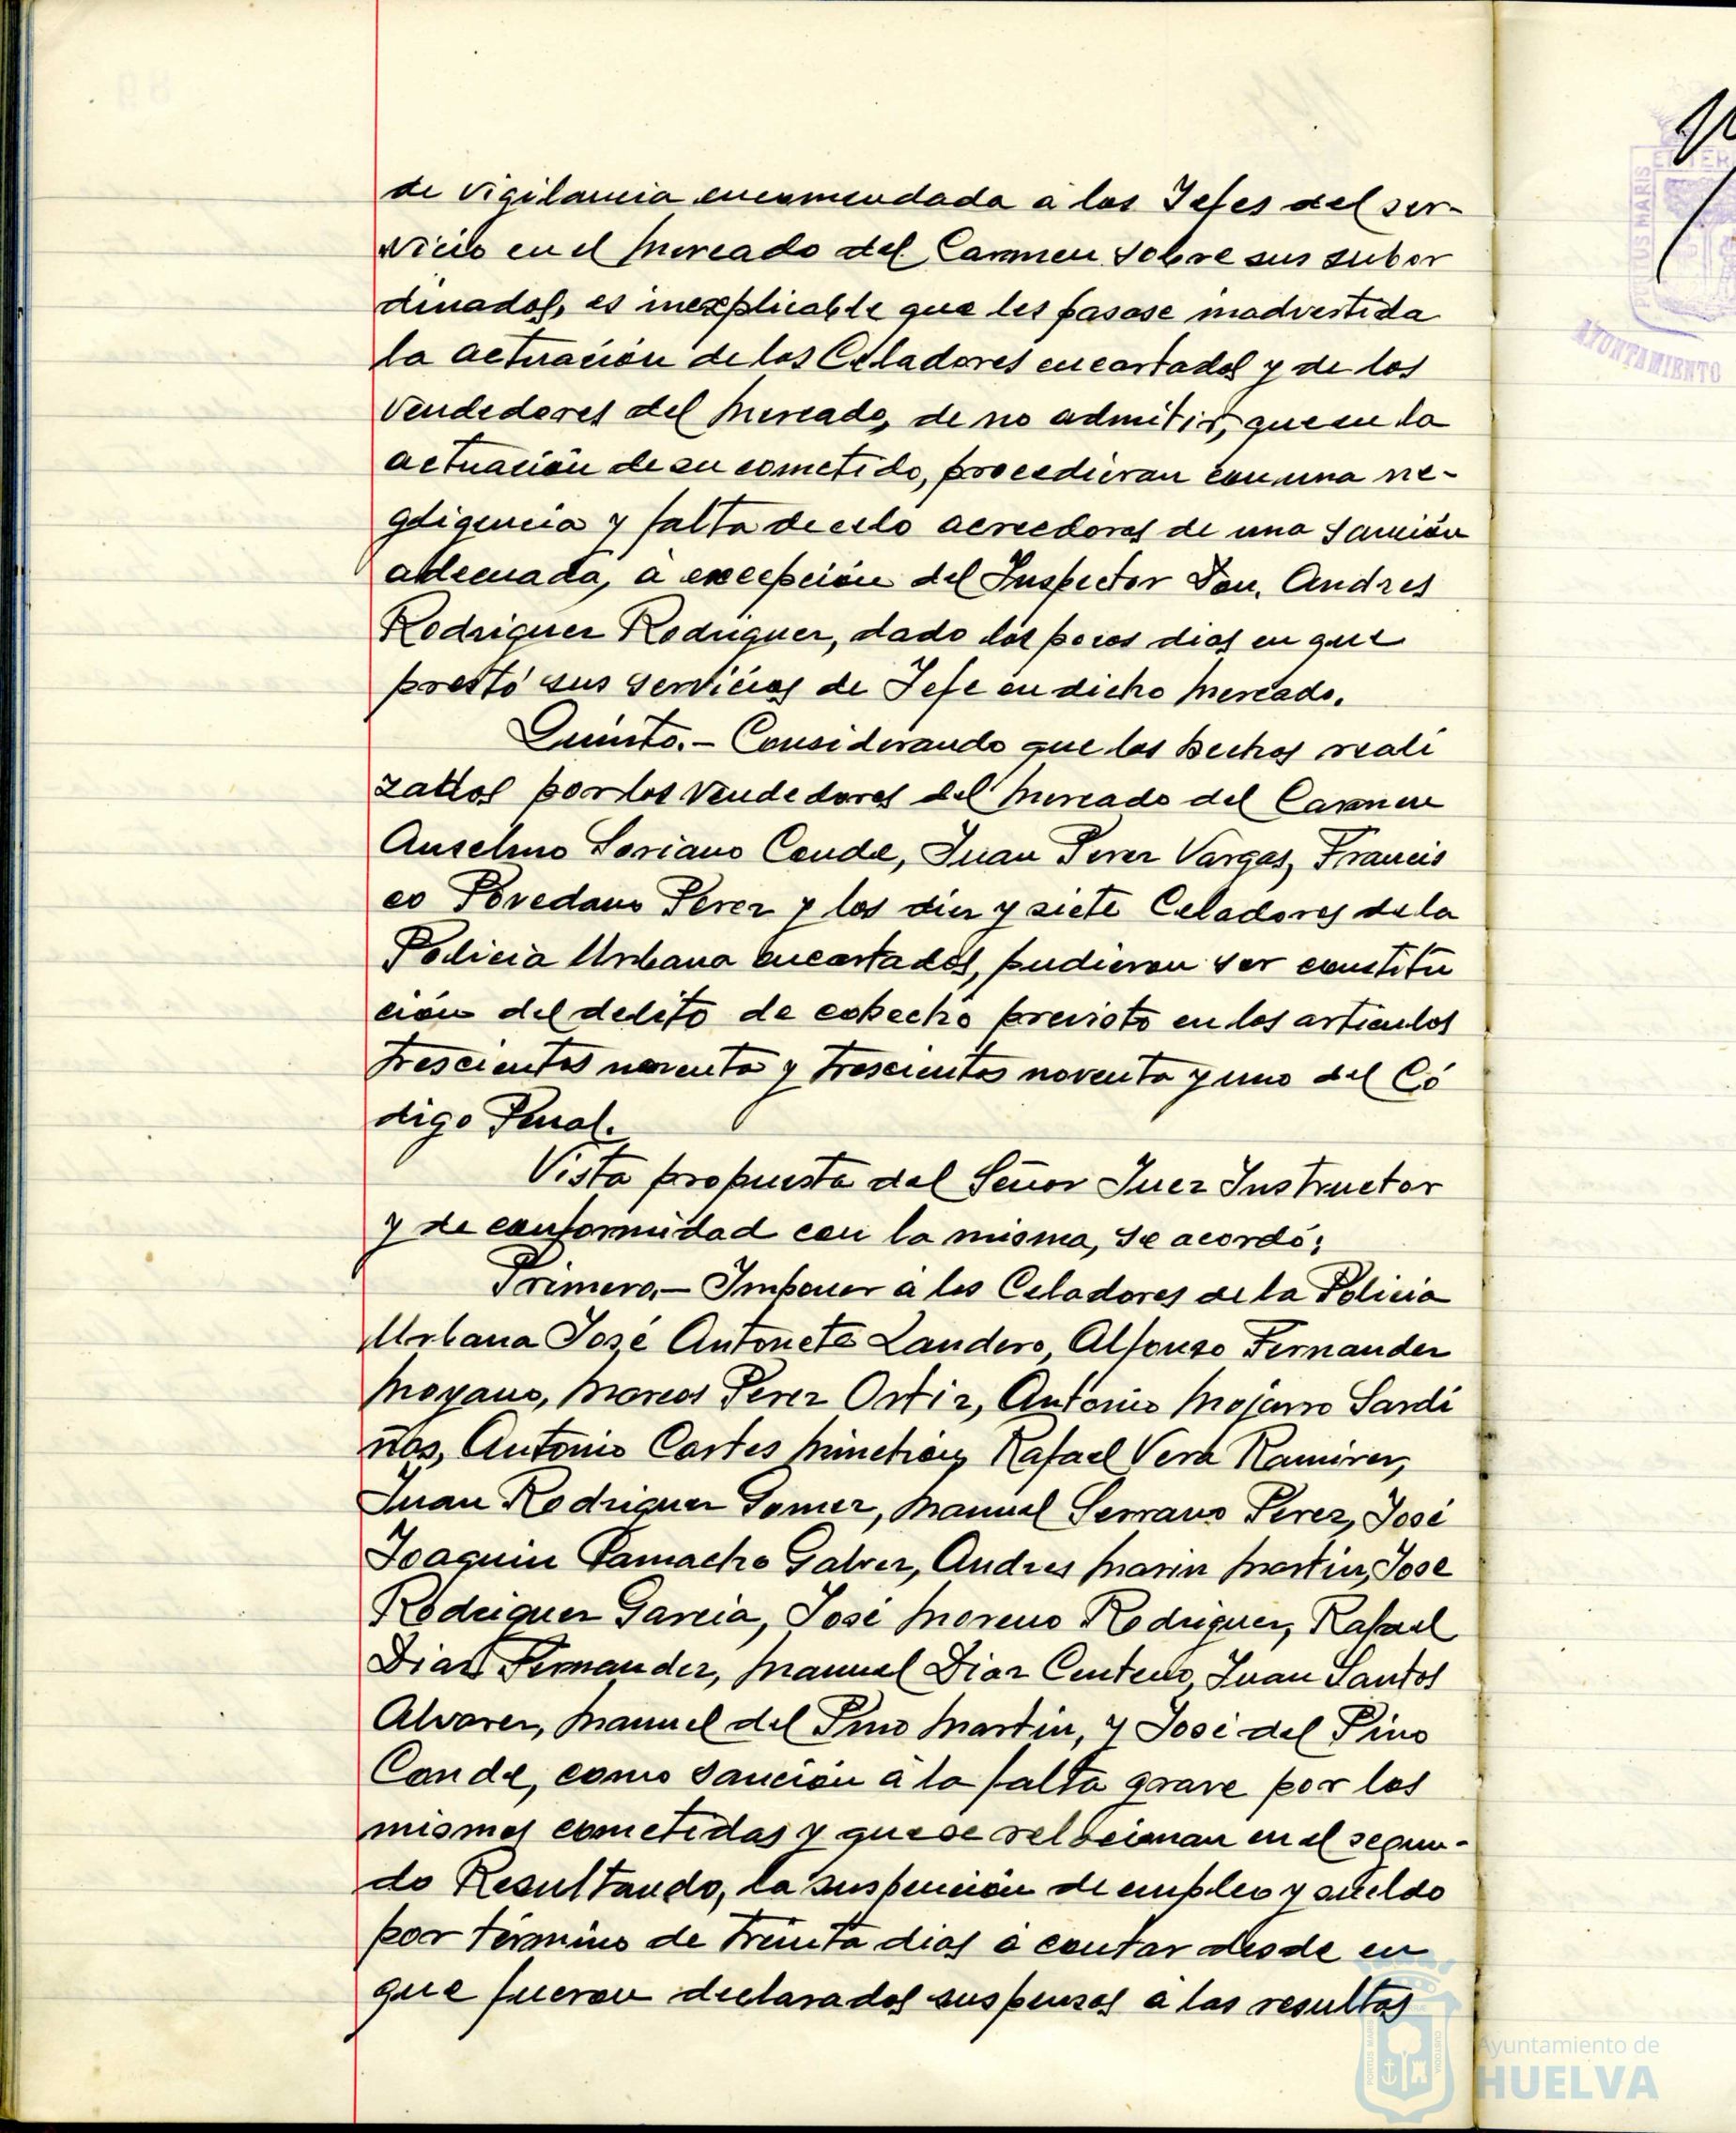 de vigilancia encomendada a los Jefes del ser-
vicio en el Mercado del Carmen sobre sus subor
dinados, es inexplicable que les pasase inadvertida
la actuación de los Celadores encartados y de los
Vendedores del Mercado, de no admitir, que en la
actuación de su cometido, procedieran con una ne-
gligencia y falta de celo acreedoras de una sanción
adecuada, a excepción del Inspector Don, Andres
Rodriguez Rodriguez, dado los pocos dias en que
prestó sus servicios de Jefe en dicho Mercado.
Quinto.- Considerando que los hechos reali
zados por los Vendedores del Mercado del Carmen
Anselmo Soriano Conde, Juan Perez Vargas, Francis
co Povedano Perez y los diez y siete Celadores de la
Policia Urbana encartados, pudieran ser constitu
ción del delito de cohecho previsto en los articulos
trescientos noventa y trescientos noventa y uno del Có
digo Penal.
Vista propuesta del Señor Juez Instructor
y de conformidad con la misma, se acordó;
Primero.- Imponer a los Celadores de la Policia
Urbana José Antonete Landero, Alfonso Fernandez
Moyano, Marcos Perez Ortiz, Antonio Mojarro Sardi
ñas, Antonio Cortes Minchón, Rafael Vera Ramirez,
Juan Rodriguez Gomez, Manuel Serrano Perez, José
Joaquin Camacho Galvez, Andres Marin Martin, Jose
Rodriguez Garcia, José Moreno Rodriguez, Rafael
Diaz Fernandez, Manuel Diaz Centeno, Juan Santos
Alvarez, Manuel del Pino Martin, y José del Pino
Conde, como sanción a la falta grave por los
mismos cometidas y que se relacionan en el segun-
do Resultando, la suspención de empleo y sueldo
por término de treinta dias a contar desde en
que fueron declarados suspensos a las resultas
PORTUS MARIS
AYUNTAMIENTO
Ayuntamiento de
HUELVA